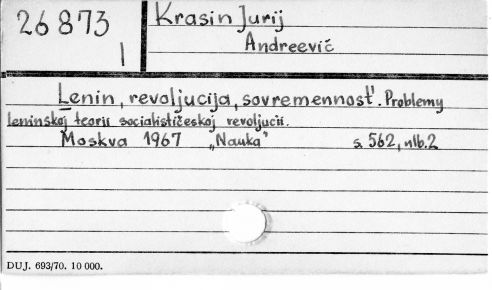 26 873
I
Krasin Jurij
Andreevič
Lenin, revoljucija, sovremennost'. Problemy
leninskoj teorii socialističeskoj revoljucii.
Moskva 1967 „Nauka" s. 562, nlb. 2
DUJ. 693/70. 10 000.